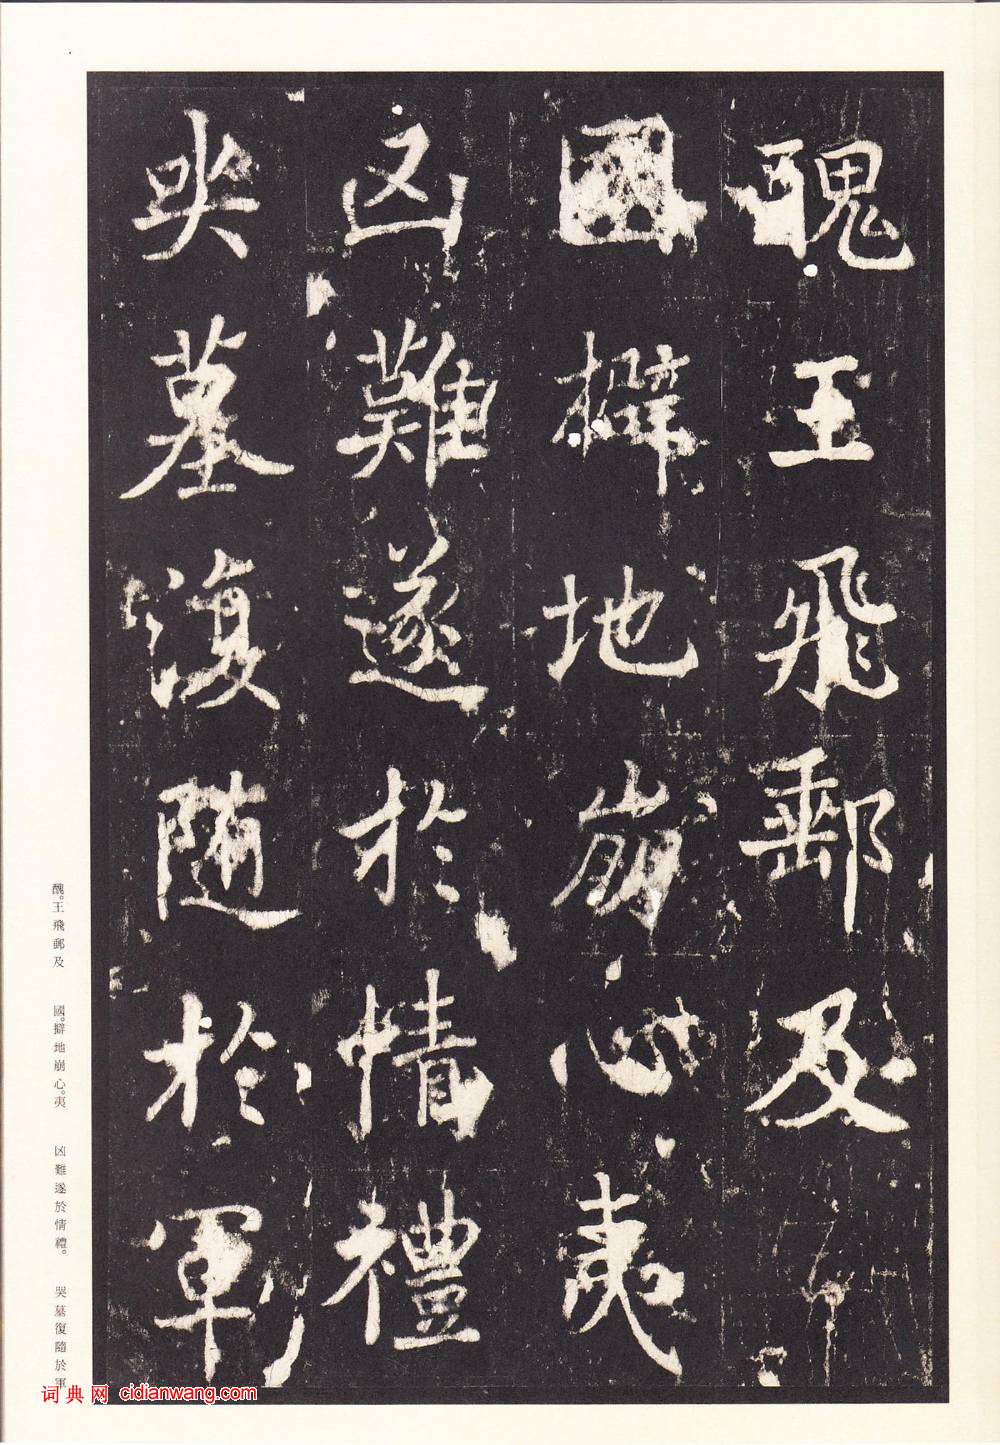 醜王飛郵及
國擗地崩心夷
凶難遂於情禮
哭墓復隨於軍
醜。王飛郵及　國。擗地崩心。夷　凶難遂於情禮。　哭墓復隨於軍
词典网 cidianwang.com